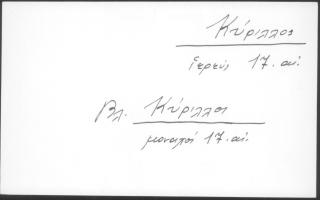 Κύριλλος
ἱερεύς 17. αἰ.
Βλ. Κύριλλος
μοναχός 17. αἰ.